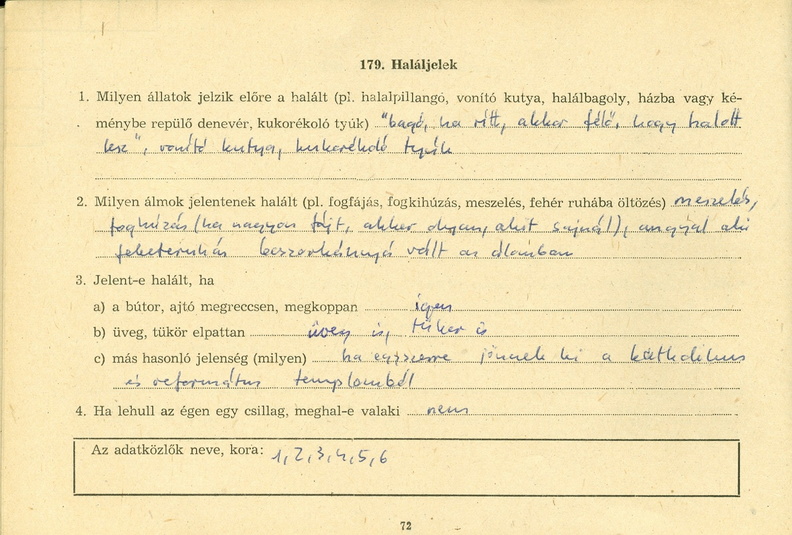 179. Haláljelek
1. Milyen állatok jelzik előre a halált (pl. halálpillangó, vonító kutya, halálbagoly, házba vagy ké-
ménybe repülő denevér, kukorékoló tyúk) "bagó, ha rítt, akkor félő, hogy halott
lesz", vonító kutya, kukorékoló tyúk
2. Milyen álmok jelentenek halált (pl. fogfájás, fogkihúzás, meszelés, fehér ruhába öltözés) meszelés,
foghúzás (ha nagyon fájt, akkor olyan, akit sajnál), angyal aki
feketeruhás boszorkánnyá vált az álomban
3. Jelent-e halált, ha
a) a bútor, ajtó megreccsen, megkoppan igen
b) üveg, tükör elpattan üveg is, tükör is
c) más hasonló jelenség (milyen) ha egyszerre jönnek ki a katholikus
és református templomból
4. Ha lehull az égen egy csillag, meghal-e valaki nem
Az adatközlők neve, kora: 1,2,3,4,5,6
72